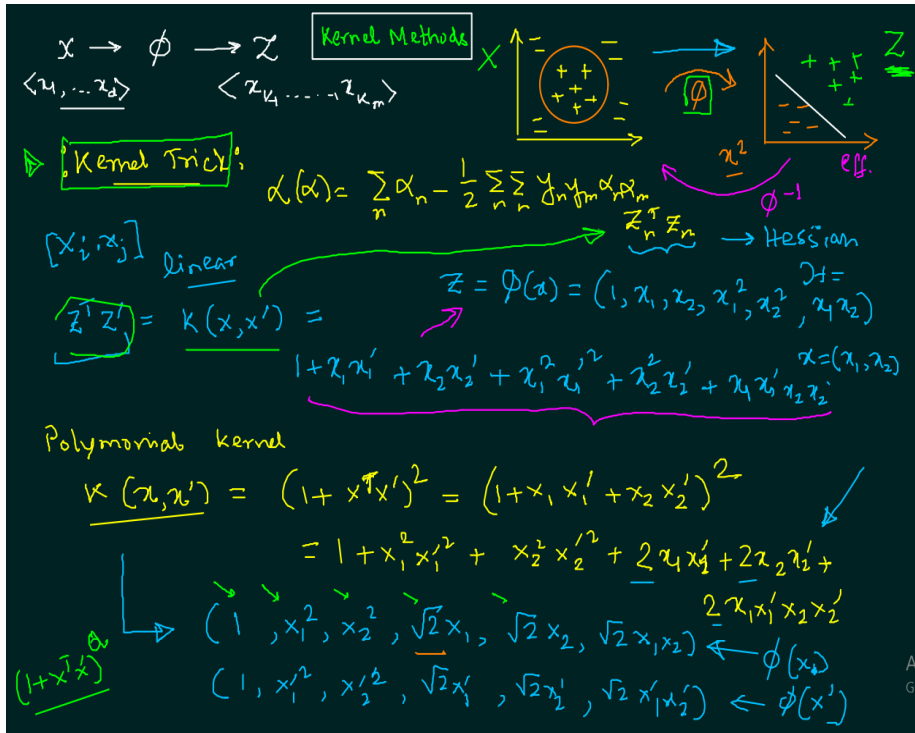 Kernel Methods
x → φ → Z
<x₁, ... x_d> <x_K₁ ......, x_K_m>
X φ Z
x² eff.
φ⁻¹
Kernel Trick:
L(α) = Σ_n α_n - 1/2 Σ_n Σ_n y_n y_m α_n α_m
Z_n^T Z_m → Hessian
[X_i, x_j] linear
Z = φ(x) = (1, x₁, x₂, x₁², x₂², x₁x₂)
Z^T Z' = K(x, x') =
x = (x₁, x₂)
1 + x₁x₁' + x₂x₂' + x₁²x₁'² + x₂²x₂'² + x₁x₁'x₂x₂'
Polynomial Kernel
K(x, x') = (1 + x^T x')² = (1 + x₁x₁' + x₂x₂')²
= 1 + x₁²x₁'² + x₂²x₂'² + 2x₁x₁' + 2x₂x₂' +
2x₁x₁'x₂x₂'
(1, x₁², x₂², √2x₁, √2x₂, √2x₁x₂) ← φ(x)
(1 + x^T x')^Q
(1, x₁'², x₂'², √2x₁', √2x₂', √2x₁'x₂') ← φ(x')